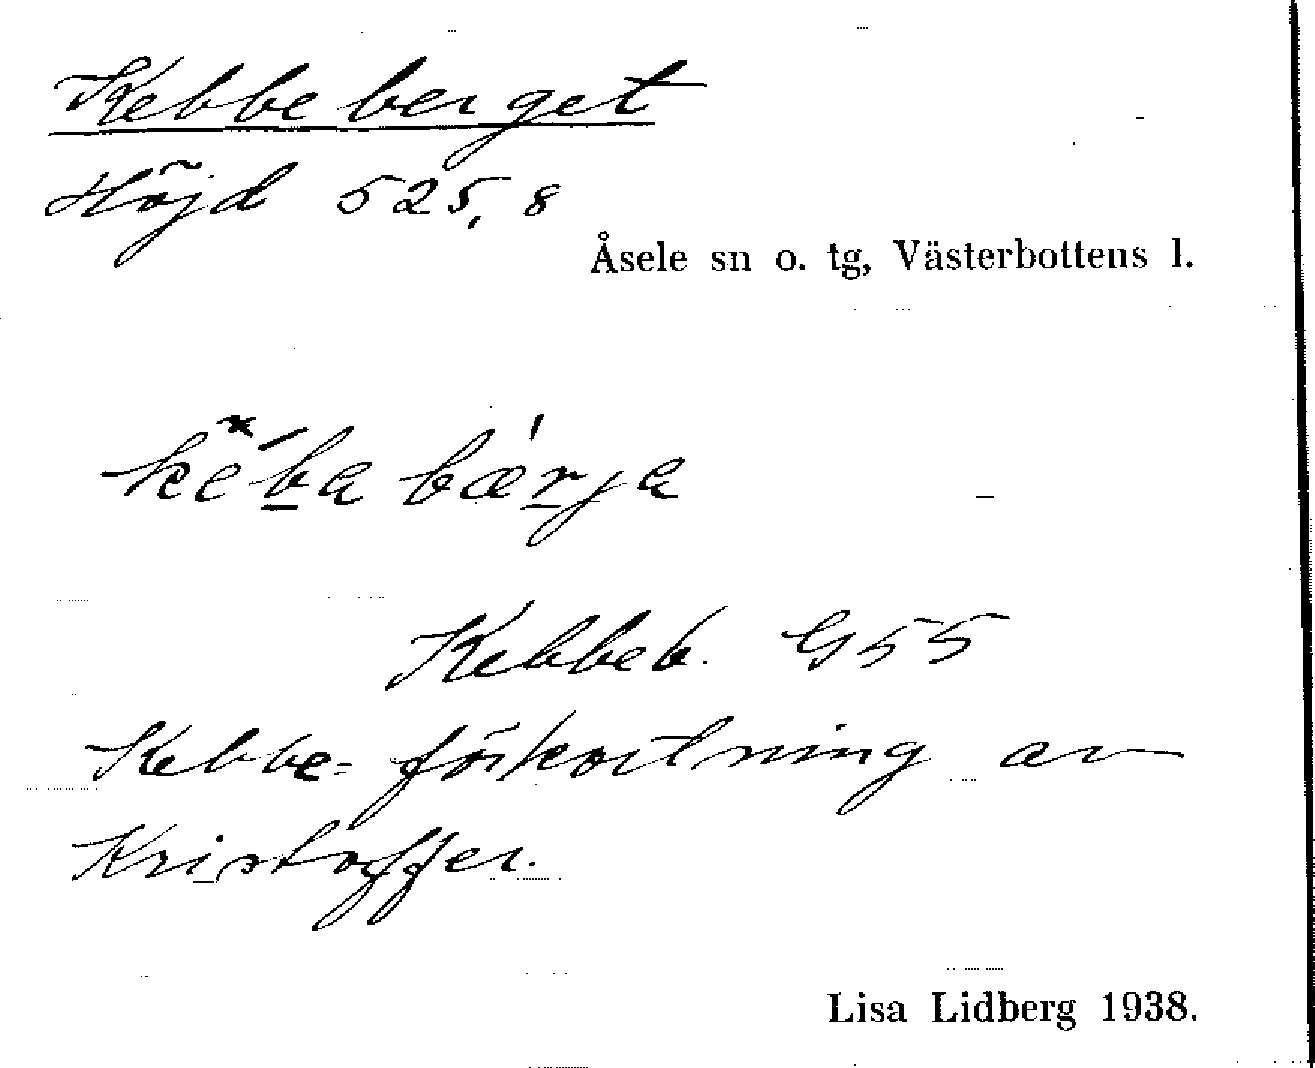 Kebbeberget
Höjd 525,8
Åsele sn o. tg, Västerbottens l.
kèba bærja
Kebbeb. G55
Kebbe- förkortning av
Kristoffer.
Lisa Lidberg 1938.